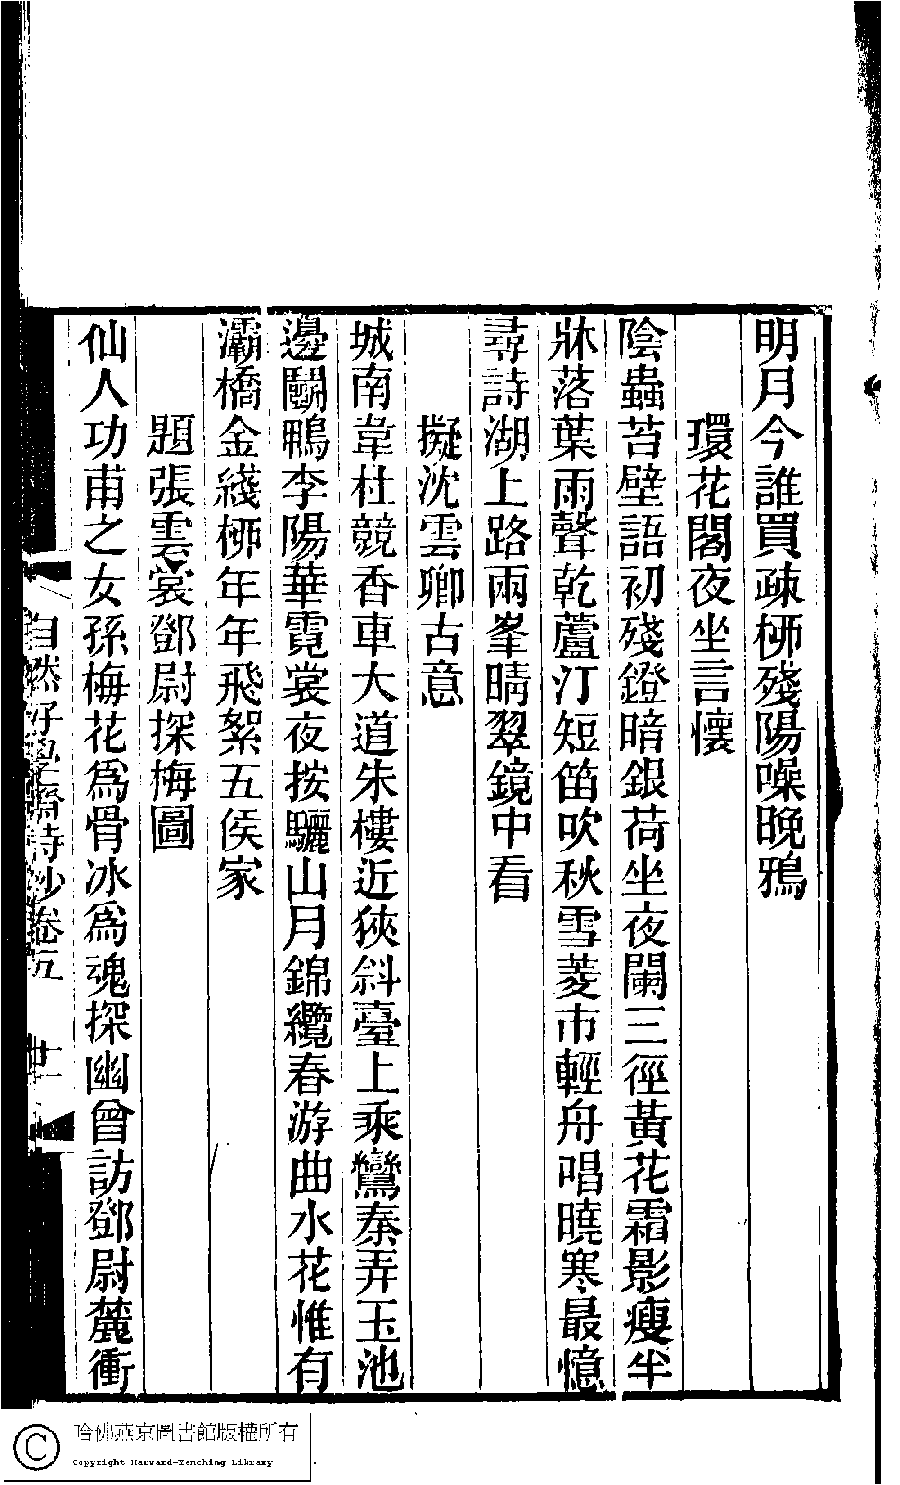 明月今誰買疎桺殘陽噪晚鴉
環花閣夜坐言懷
陰蟲苔壁語初殘鐙暗銀荷坐夜闌三徑黃花霜影瘦半
牀落葉雨聲乾蘆汀短笛吹秋雪菱市輕舟唱曉寒最憶
尋詩湖上路兩峯晴翠鏡中看
擬沈雲卿古意
城南韋杜競香車大道朱樓近狹斜臺上乘鸞秦弄玉池
邊鬭鴨李陽華霓裳夜按驪山月錦纜春游曲水花惟有
灞橋金綫桺年年飛絮五侯家
題張雲裳鄧尉探梅圖
仙人功甫之女孫梅花爲骨冰爲魂探幽曾訪鄧尉麓衝
自然好學齋詩鈔卷五
廿一
哈佛燕京圖書館版權所有
Copyright Harvard-Yenching Library